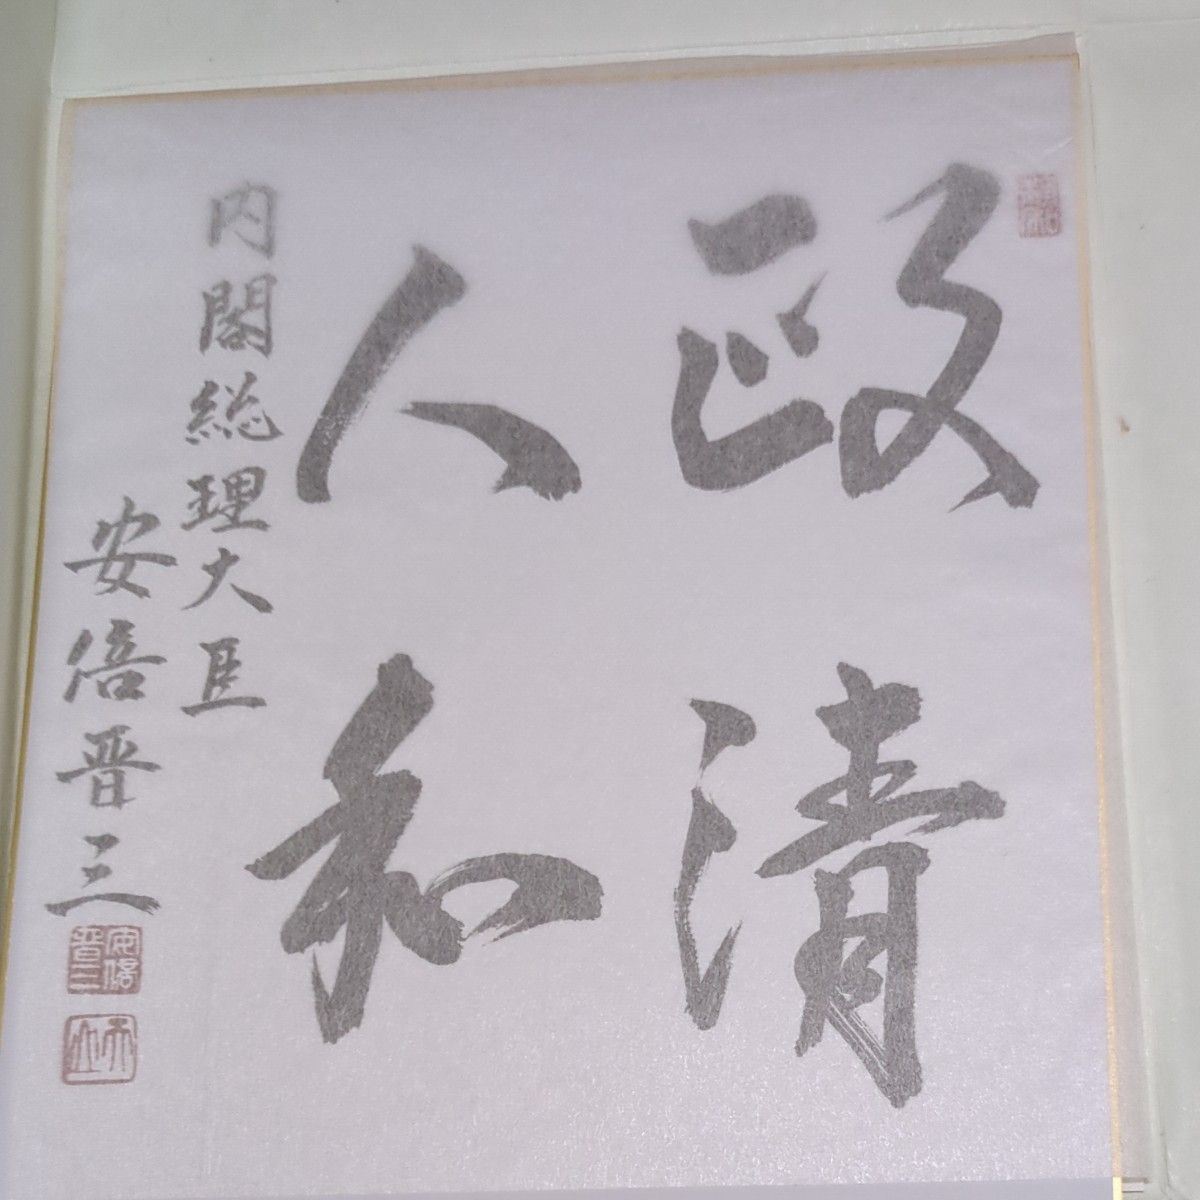 政清
人和
内閣総理大臣
安倍晋三
安倍
晋三